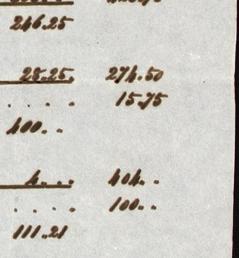 246.25
25.25. 274.50
. . . . 15.75
400. .
4. . . 404. .
. . . . 100. .
111.21